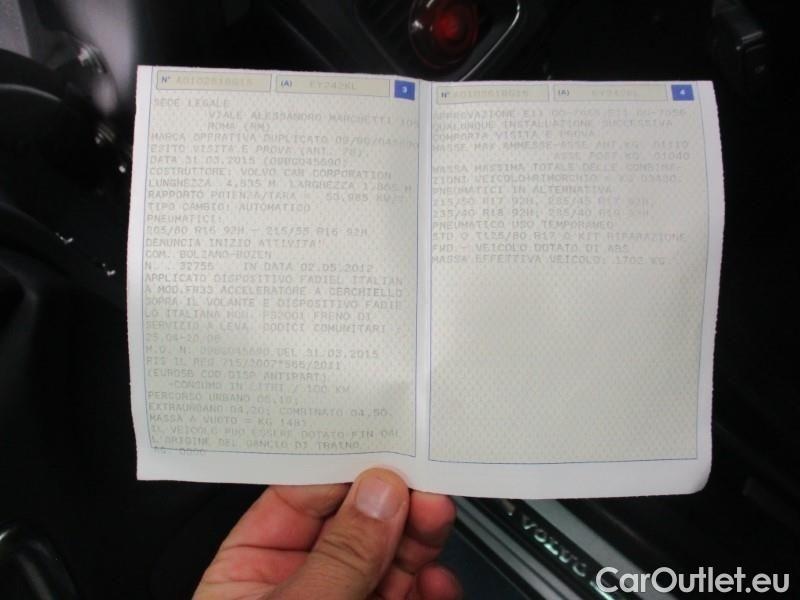 N° A010261BG15 (A) EY242KL 3
SEDE LEGALE
VIALE ALESSANDRO MARCHETTI 105
ROMA (RM)
MARCA OPERATIVA:DUPLICATO 09/BG/045690
ESITO VISITA E PROVA (ART. 78).
DATA 31.03.2015 (09BG045690)
COSTRUTTORE: VOLVO CAR CORPORATION
LUNGHEZZA 4,635 M LARGHEZZA 1,865 M
RAPPORTO POTENZA/TARA =
TIPO CAMBIO: AUTOMATICO
PNEUMATICI:
205/60 R16 92H - 215/55 R16 92H
DENUNCIA INIZIO ATTIVITA'
COM. BOLZANO-BOZEN
N. . 32755 IN DATA 02.05.2012
APPLICATO DISPOSITIVO FADIEL ITALIAN
A MOD.FR33 ACCELERATORE A CERCHIELLO
SOPRA IL VOLANTE E DISPOSITIVO FADIE
L0 ITALIANA MOD. FS2001 FRENO DI
SERVIZIO A LEVA. CODICI COMUNITARI :
25.04-20.06
M.O. N. 09BG045690 DEL 31.03.2015
RIS IL REG 715/2007*566/2011
(EURO5B COD DISP ANTIPART)
-CONSUMO IN LITRI / 100 KM
PERCORSO URBANO 05,10;
EXTRAURBANO 04,20; COMBINATO 04,50.
MASSA A VUOTO = KG 1481
IL VEICOLO PUO' ESSERE DOTATO FIN DAL
L'ORIGINE DEL GANCIO DI TRAINO
N° A010261BG15 (A) EY242KL 4
APPROVAZIONE E11 00-7055;E11 00-7056
QUALUNQUE INSTALLAZIONE SUCCESSIVA
COMPORTA VISITA E PROVA
MASSE MAX AMMESSE-ASSE ANT.KG. 01110
ASSE POST.KG. 01040
MASSA MASSIMA TOTALE DELLE COMBINA-
ZIONI VEICOLO+RIMORCHIO = KG 03480.
PNEUMATICI IN ALTERNATIVA
215/50 R17 92H, 235/45 R17 92H,
235/40 R18 92H; 235/40 R19 92H
PNEUMATICO USO TEMPORANEO
STD O T125/80 R17 O KIT RIPARAZIONE
FWD. - VEICOLO DOTATO DI ABS
MASSA EFFETTIVA VEICOLO: 1702 KG.
VOLVO
CarOutlet.eu